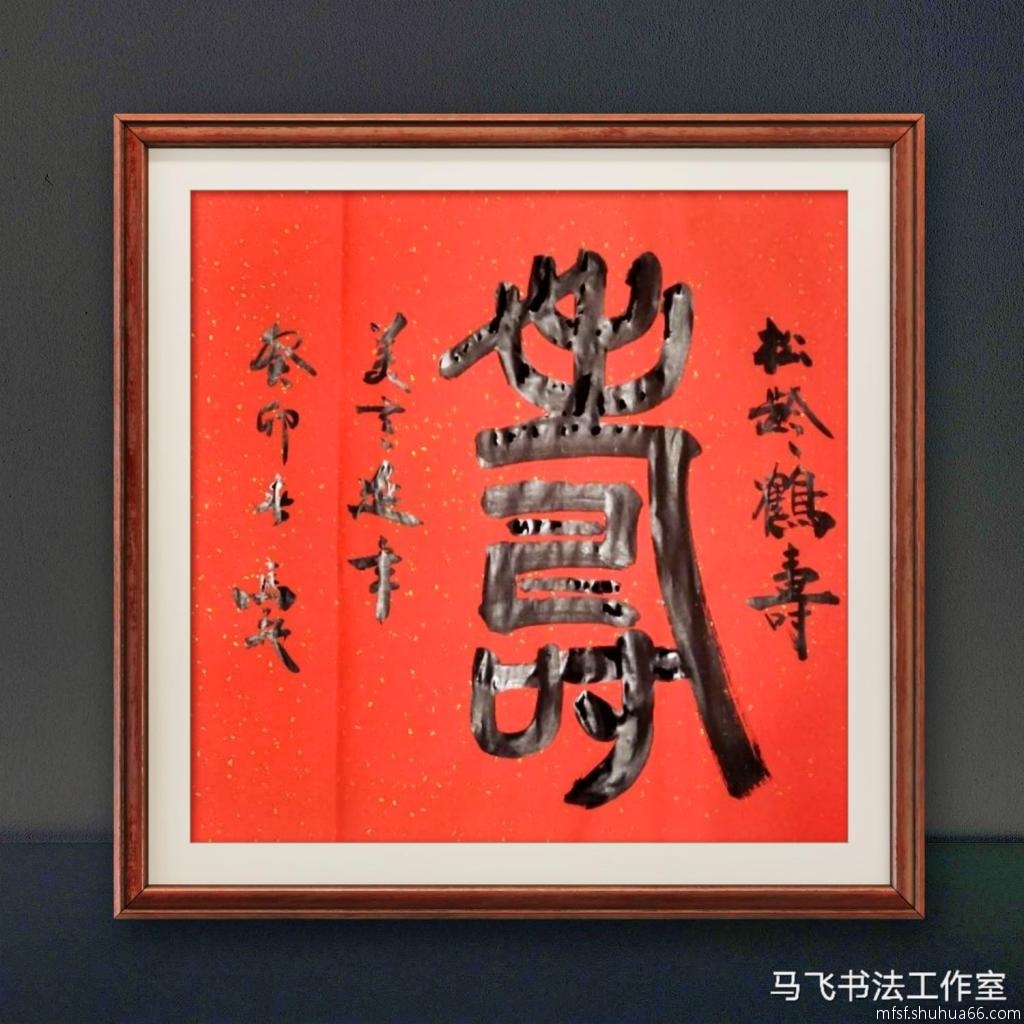 松龄鹤寿
壽
美意延年
癸卯春 马飞
马飞书法工作室
mfsf.shuhua66.com